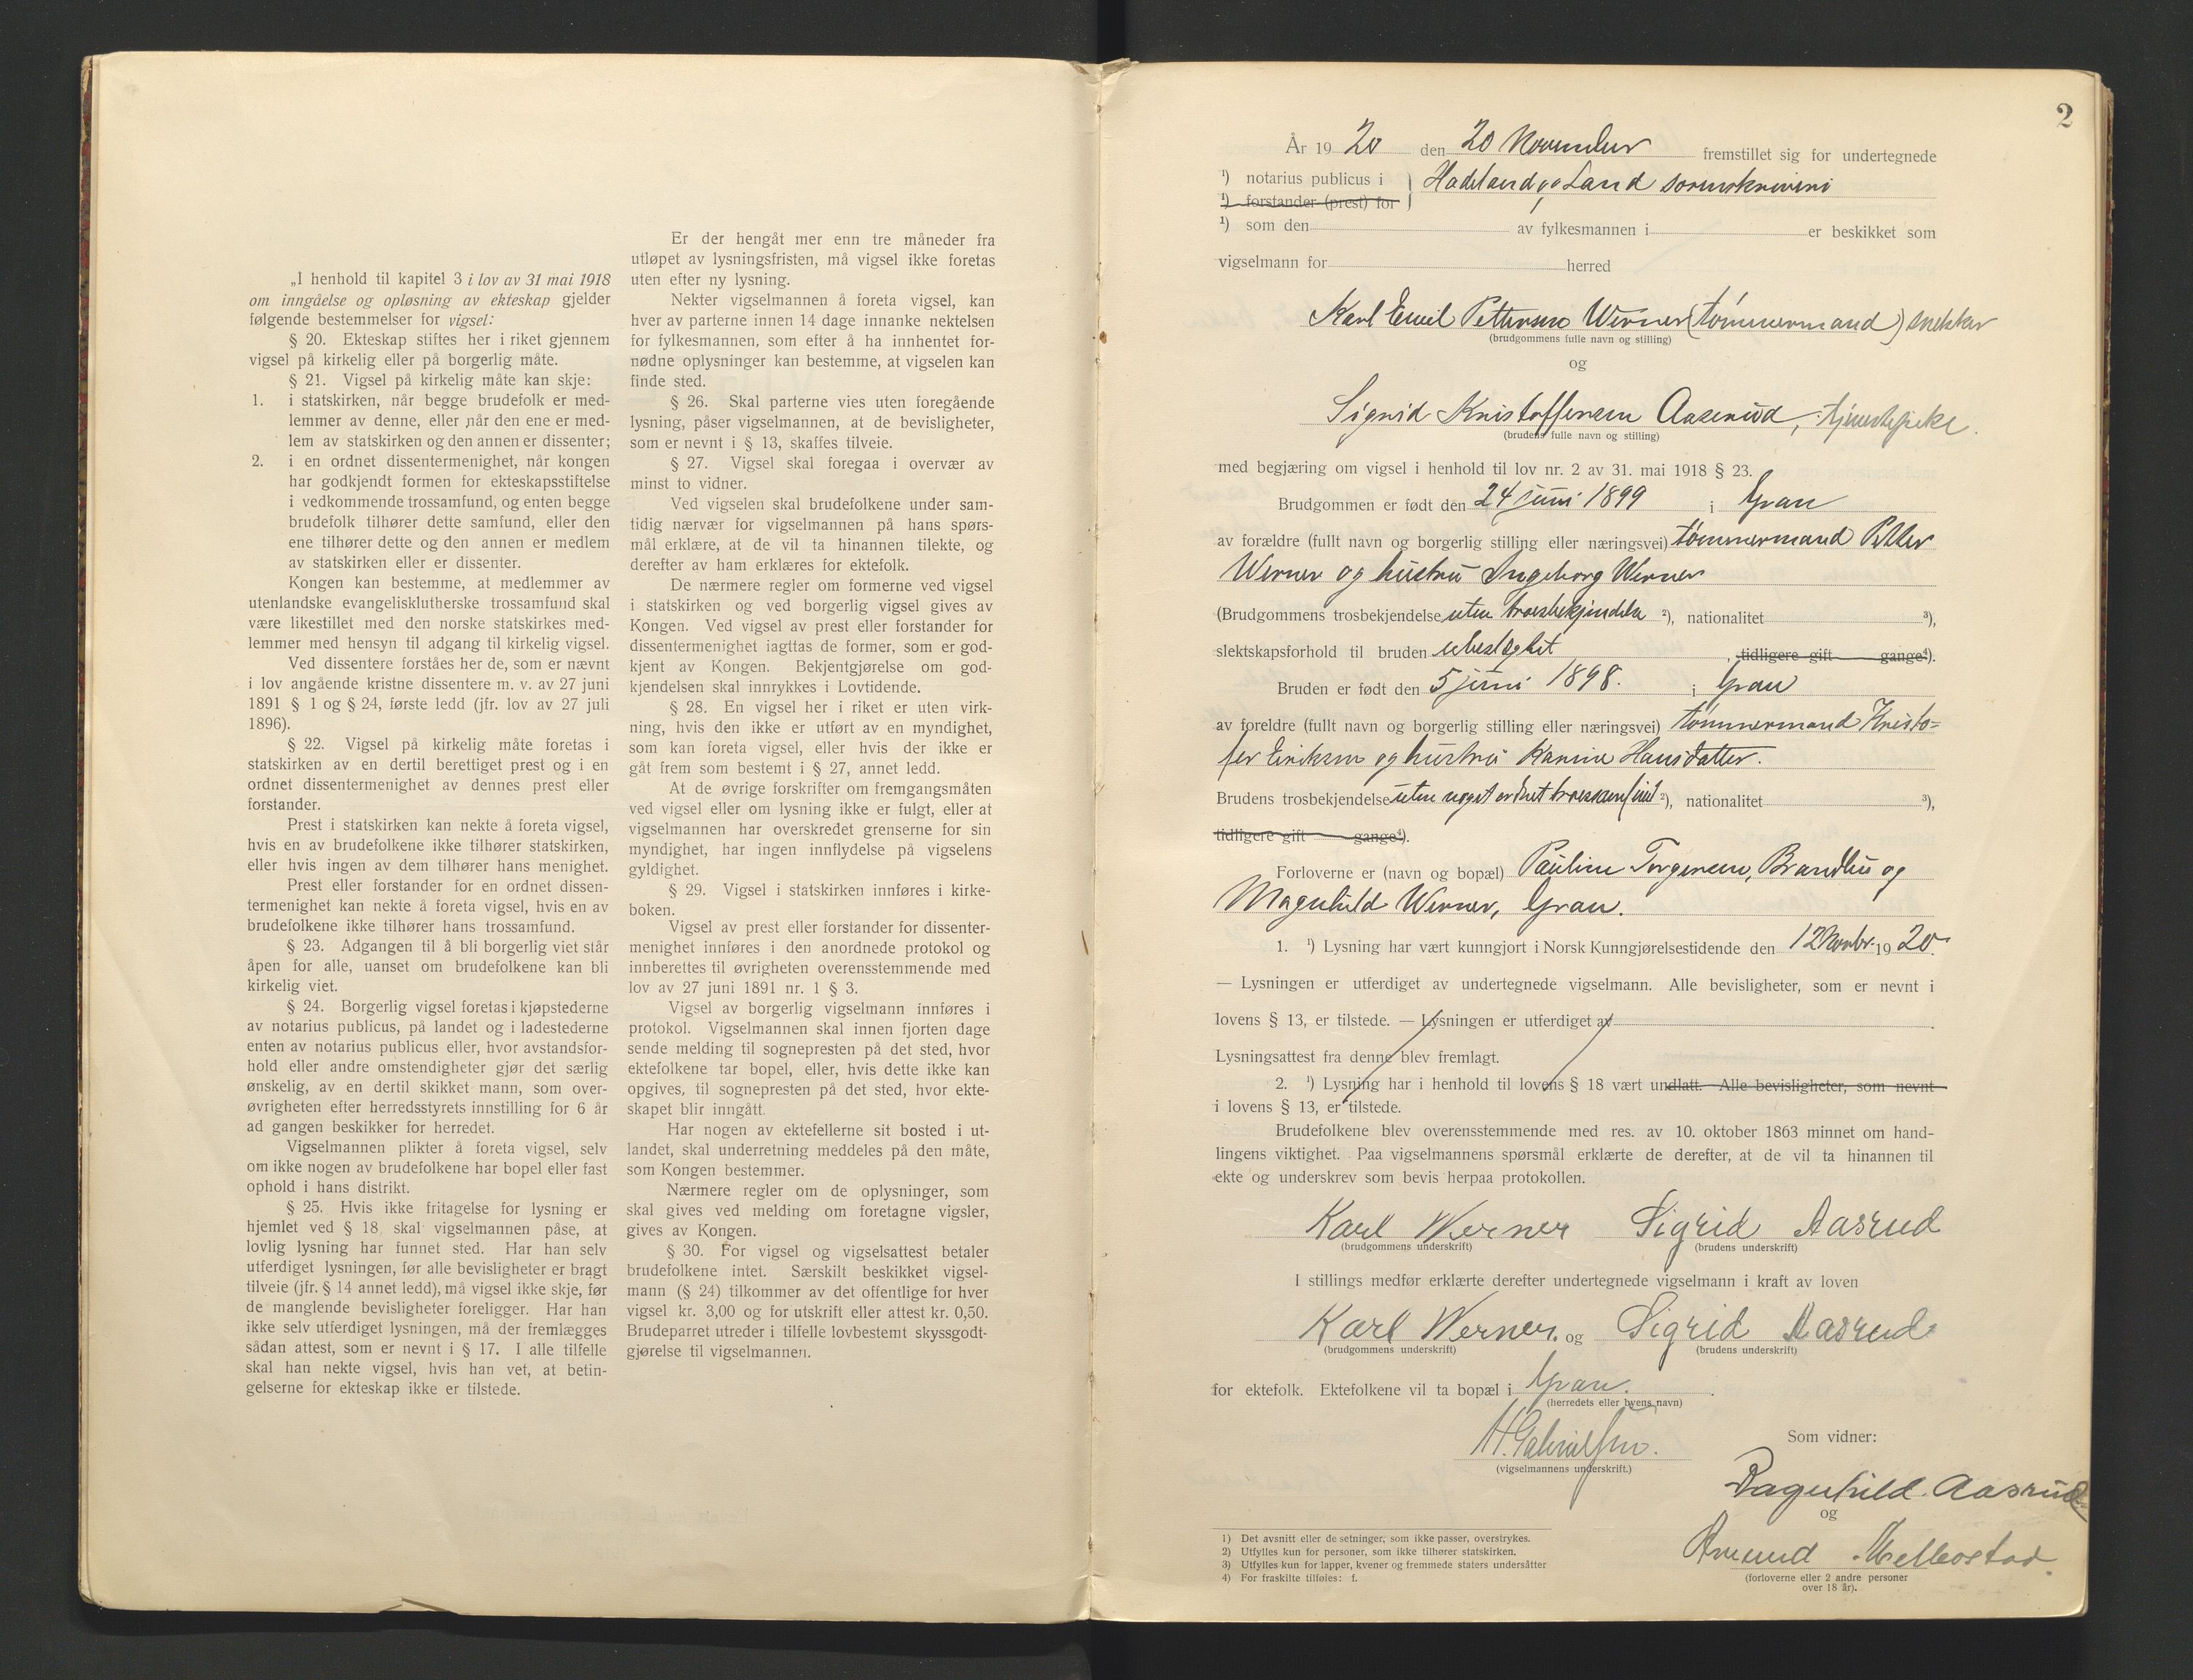 „I henhold til kapitel 3 i lov av 31 mai 1918
om inngåelse og opløsning av ekteskap gjelder
følgende bestemmelser for vigsel:
§ 20. Ekteskap stiftes her i riket gjennem
vigsel på kirkelig eller på borgerlig måte.
§ 21. Vigsel på kirkelig måte kan skje:
1. i statskirken, når begge brudefolk er med-
lemmer av denne, eller når den ene er med-
lem av statskirken og den annen er dissenter;
2. i en ordnet dissentermenighet, når kongen
har godkjendt formen for ekteskapsstiftelse
i vedkommende trossamfund, og enten begge
brudefolk tilhører dette samfund, eller den
ene tilhører dette og den annen er medlem
av statskirken eller er dissenter.
Kongen kan bestemme, at medlemmer av
utenlandske evangeliskluterske trossamfund skal
være likestillet med den norske statskirkes med-
lemmer med hensyn til adgang til kirkelig vigsel.
Ved dissentere forståes her de, som er nævnt
i lov angående kristne dissentere m. v. av 27 juni
1891 § 1 og § 24, første ledd (jfr. lov av 27 juli
1896).
§ 22. Vigsel på kirkelig måte foretas i
statskirken av en dertil berettiget prest og i en
ordnet dissentermenighet av dennes prest eller
forstander.
Prest i statskirken kan nekte å foreta vigsel,
hvis en av brudefolkene ikke tilhører statskirken,
eller hvis ingen av dem tilhører hans menighet.
Prest eller forstander for en ordnet dissen-
termenighet kan nekte å foreta vigsel, hvis en av
brudefolkene ikke tilhører hans trossamfund.
§ 23. Adgangen til å bli borgerlig viet står
åpen for alle, uanset om brudefolkene kan bli
kirkelig viet.
§ 24. Borgerlig vigsel foretas i kjøpstederne
av notarius publicus, på landet og i ladestederne
enten av notarius publicus eller, hvor avstandsfor-
hold eller andre omstendigheter gjør det særlig
ønskelig, av en dertil skikket mann, som over-
øvrigheten efter herredsstyrets innstilling for 6 år
ad gangen beskikker for herredet.
Vigselmannen plikter å foreta vigsel, selv
om ikke nogen av brudefolkene har bopel eller fast
ophold i hans distrikt.
§ 25. Hvis ikke fritagelse for lysning er
hjemlet ved § 18 skal vigselmannen påse, at
lovlig lysning har funnet sted. Har han selv
utferdiget lysningen, før alle bevisligheter er bragt
tilveie (jfr. § 14 annet ledd), må vigsel ikke skje, før
de manglende bevisligheter foreligger. Har han
ikke selv utferdiget lysningen, må der fremlægges
sådan attest, som er nevnt i § 17. I alle tilfelle
skal han nekte vigsel, hvis han vet, at betin-
gelserne for ekteskap ikke er tilstede.
Er der hengåt mer enn tre måneder fra
utløpet av lysningsfristen, må vigsel ikke foretas
uten efter ny lysning.
Nekter vigselmannen å foreta vigsel, kan
hver av parterne innen 14 dage innanke nektelsen
for fylkesmannen, som efter å ha innhentet for-
nødne oplysninger kan bestemme, at vigselen kan
finde sted.
§ 26. Skal parterne vies uten foregående
lysning, påser vigselmannen, at de bevisligheter,
som er nevnt i § 13, skaffes tilveie.
§ 27. Vigsel skal foregaa i overvær av
minst to vidner.
Ved vigselen skal brudefolkene under sam-
tidig nærvær for vigselmannen på hans spørs-
mål erklære, at de vil ta hinannen tilekte, og
derefter av ham erklæres for ektefolk.
De nærmere regler om formerne ved vigsel
i statskirken og ved borgerlig vigsel gives av
Kongen. Ved vigsel av prest eller forstander for
dissentermenighet iagttas de former, som er god-
kjent av Kongen. Bekjentgjørelse om god-
kjendelsen skal innrykkes i Lovtidende.
§ 28. En vigsel her i riket er uten virk-
ning, hvis den ikke er utført av en myndighet,
som kan foreta vigsel, eller hvis der ikke er
gåt frem som bestemt i § 27, annet ledd.
At de øvrige forskrifter om fremgangsmåten
ved vigsel eller om lysning ikke er fulgt, eller at
vigselmannen har overskredet grenserne for sin
myndighet, har ingen innflydelse på vigselens
gyldighet.
§ 29. Vigsel i statskirken innføres i kirke-
boken.
Vigsel av prest eller forstander for dissenter-
menighet innføres i den anordnede protokol og
innberettes til øvrigheten overensstemmende med
lov av 27 juni 1891 nr. 1 § 3.
Vigsel av borgerlig vigselmann innføres i
protokol. Vigselmannen skal innen fjorten dage
sende melding til sognepresten på det sted, hvor
ektefolkene tar bopel, eller, hvis dette ikke kan
opgives, til sognepresten på det sted, hvor ekte-
skapet blir inngått.
Har nogen av ektefellerne sit bosted i ut-
landet, skal underretning meddeles på den måte,
som Kongen bestemmer.
Nærmere regler om de oplysninger, som
skal gives ved melding om foretagne vigsler,
gives av Kongen.
§ 30. For vigsel og vigselsattest betaler
brudefolkene intet. Særskilt beskikket vigsel-
mann (§ 24) tilkommer av det offentlige for hver
vigsel kr. 3,00 og for utskrift eller attest kr. 0,50.
Brudeparret utreder i tilfelle lovbestemt skyssgodt-
gjørelse til vigselmannen.
2
År 1920 den 20 November fremstillet sig for undertegnede
¹) notarius publicus i } Hadeland og Land sorenskriveri
¹) forstander (prest) for
¹) som den av fylkesmannen i er beskikket som
vigselmann for herred
Karl Emil Pettersen Werner (tømmermand) snekker
(brudgommens fulle navn og stilling)
og
Sigrid Kristoffersen Aaserud, tjenestepike.
(brudens fulle navn og stilling)
med begjæring om vigsel i henhold til lov nr. 2 av 31. mai 1918 § 23.
Brudgommen er født den 24 juni 1899 i Gran
av forældre (fullt navn og borgerlig stilling eller næringsvei) tømmermand Petter
Werner og hustru Ingeborg Werner
(Brudgommens trosbekjendelse uten troesbekjendelse ²), nationalitet ³),
slektskapsforhold til bruden ubeslegtet, tidligere gift gange⁴).
Bruden er født den 5 juni 1898. i Gran
av foreldre (fullt navn og borgerlig stilling eller næringsvei) tømmermand Kristo-
fer Eriksen og hustru Karine Hansdatter.
Brudens trosbekjendelse uten noget ordnet troessamfund ²), nationalitet ³),
tidligere gift gange⁴).
Forloverne er (navn og bopæl) Pauline Torgersen, Brandbu og
Magnhild Werner, Gran.
1. ¹) Lysning har vært kunngjort i Norsk Kunngjørelsestidende den 12 Novbr. 1920.
— Lysningen er utferdiget av undertegnede vigselmann. Alle bevisligheter, som er nevnt i
lovens § 13, er tilstede. — Lysningen er utferdiget av
Lysningsattest fra denne blev fremlagt.
2. ¹) Lysning har i henhold til lovens § 18 vært undlatt. Alle bevisligheter, som nevnt
i lovens § 13, er tilstede.
Brudefolkene blev overensstemmende med res. av 10. oktober 1863 minnet om hand-
lingens viktighet. Paa vigselmannens spørsmål erklærte de derefter, at de vil ta hinannen til
ekte og underskrev som bevis herpaa protokollen.
Karl Werner Sigrid Aasrud
(brudgommens underskrift) (brudens underskrift)
I stillings medfør erklærte derefter undertegnede vigselmann i kraft av loven
Karl Werner. og Sigrid Aasrud
(brudgommens underskrift) (brudens underskrift)
for ektefolk. Ektefolkene vil ta bopæl i Gran.
(herredets eller byens navn)
H. Gabrielsen.
(vigselmannens underskrift.)
Som vidner:
Ragnhild Aasrud
og
Amund Mellbostad
(forloverne eller 2 andre personer
over 18 år).
1) Det avsnitt eller de setninger, som ikke passer, overstrykes.
2) Utfylles kun for personer, som ikke tilhører statskirken.
3) Utfylles kun for lapper, kvener og fremmede staters undersåtter
4) For fraskilte tilføies: f.